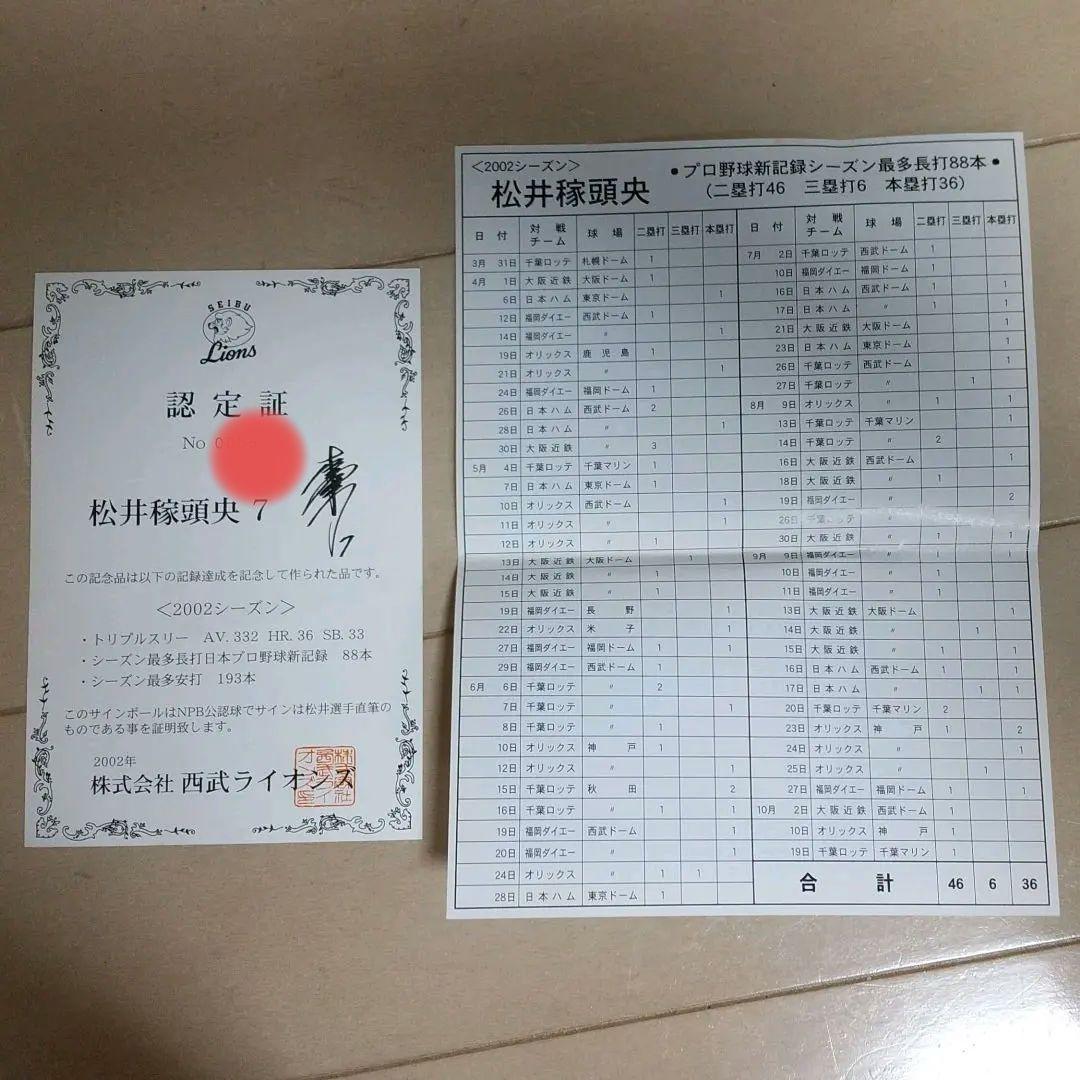 SEIBU
Lions
認定証
No
松井稼頭央 7
この記念品は以下の記録達成を記念して作られた品です。
＜2002シーズン＞
・トリプルスリー AV.332 HR.36 SB.33
・シーズン最多長打日本プロ野球新記録 88本
・シーズン最多安打 193本
このサインボールはNPB公認球でサインは松井選手直筆の
ものである事を証明致します。
2002年
株式会社 西武ライオンズ
＜2002シーズン＞
松井稼頭央
●プロ野球新記録シーズン最多長打88本●
（二塁打46 三塁打6 本塁打36）
日付 対戦チーム 球場 二塁打 三塁打 本塁打
3月 31日 千葉ロッテ 札幌ドーム 1
4月 1日 大阪近鉄 大阪ドーム 1
6日 日本ハム 東京ドーム 1
12日 福岡ダイエー 西武ドーム 1
14日 福岡ダイエー 〃 1
19日 オリックス 鹿児島 1
21日 オリックス 〃 1
24日 福岡ダイエー 福岡ドーム 1
26日 日本ハム 西武ドーム 2
28日 日本ハム 〃 1
30日 大阪近鉄 〃 3
5月 4日 千葉ロッテ 千葉マリン 1
7日 日本ハム 東京ドーム 1
10日 オリックス 西武ドーム 1
11日 オリックス 〃 1
12日 オリックス 〃 1
13日 大阪近鉄 大阪ドーム 1
14日 大阪近鉄 〃 1
15日 大阪近鉄 〃 1
19日 福岡ダイエー 長野 1
22日 オリックス 米子 1
27日 福岡ダイエー 福岡ドーム 1 1
29日 福岡ダイエー 西武ドーム 1
6月 6日 千葉ロッテ 〃 2
7日 千葉ロッテ 〃 1
8日 千葉ロッテ 〃 1
10日 オリックス 神戸 1
12日 オリックス 〃 1
15日 千葉ロッテ 秋田 2
16日 千葉ロッテ 〃 1 1
19日 福岡ダイエー 西武ドーム 1
20日 福岡ダイエー 〃 1
24日 オリックス 〃 1 1
28日 日本ハム 東京ドーム 1
日付 対戦チーム 球場 二塁打 三塁打 本塁打
7月 2日 千葉ロッテ 西武ドーム 1
10日 福岡ダイエー 福岡ドーム 1
16日 日本ハム 西武ドーム 1 1
17日 日本ハム 〃 1 1
21日 大阪近鉄 大阪ドーム 1
23日 日本ハム 東京ドーム 1
26日 千葉ロッテ 西武ドーム 1
27日 千葉ロッテ 〃 1
8月 9日 オリックス 〃 1 1
13日 千葉ロッテ 千葉マリン 1
14日 千葉ロッテ 〃 2
16日 大阪近鉄 西武ドーム 1
18日 大阪近鉄 〃 1
19日 福岡ダイエー 〃 2
26日 千葉ロッテ 〃
30日 大阪近鉄 〃 1 1
9月 9日 福岡ダイエー 〃 1 1
10日 福岡ダイエー 〃 1
11日 福岡ダイエー 〃 1
13日 大阪近鉄 大阪ドーム 1
14日 大阪近鉄 〃 1
15日 大阪近鉄 〃 1 1
16日 日本ハム 西武ドーム 1 1
17日 日本ハム 〃 1 1
20日 千葉ロッテ 千葉マリン 2
23日 オリックス 神戸 1 2
24日 オリックス 〃 1
25日 オリックス 〃 1
27日 福岡ダイエー 福岡ドーム 1 1
10月 2日 大阪近鉄 西武ドーム 1
10日 オリックス 神戸 1
19日 千葉ロッテ 千葉マリン 1
合計 46 6 36